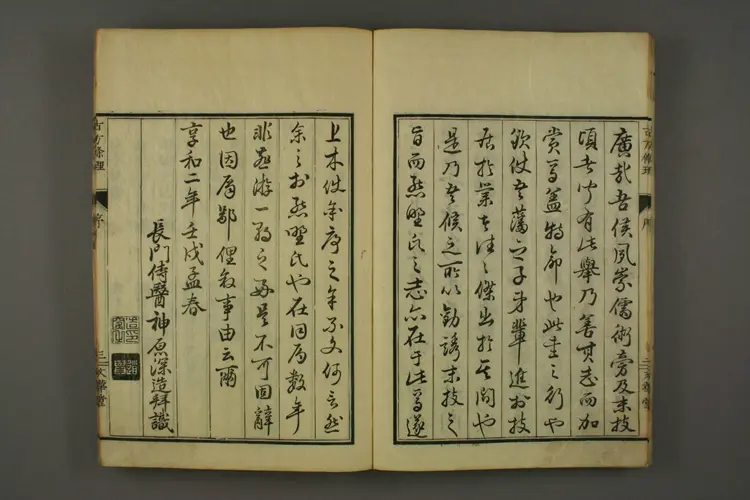 古方條理
序
二
文華堂
廣哉吾侯夙崇儒術旁及末技
頃者聞有此舉乃善其志而加
賞焉蓋特命也此書之行也
欲使吾藩之子弟輩進於技
居於業者往々傑出於其間也
是乃吾候之所以勧誘末技之
旨而熊野氏之志亦在于此焉遂
上木使余序之余不文何言然
余之於熊野氏也在同局数年
非游一之好是不可固辭
也因爲鄙俚叙事由云爾
享和二年壬戌孟春
長門侍醫神原深造拜識
古方條理
序
三
文華堂